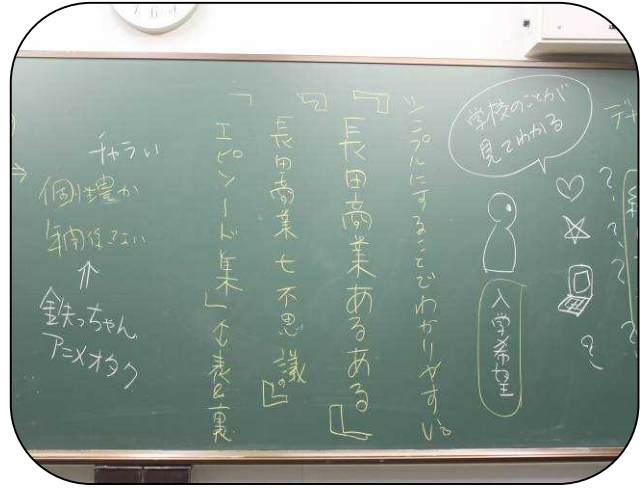 デ
学校のことが
見てわかる
入学希望
シンプルにすることでわかりやすい
『長田商業あるある』
『長田商業七不思議』
「エピソード集」
チャラい
個性豊か
年関係ない
↑
鉄っちゃん
アニメオタク